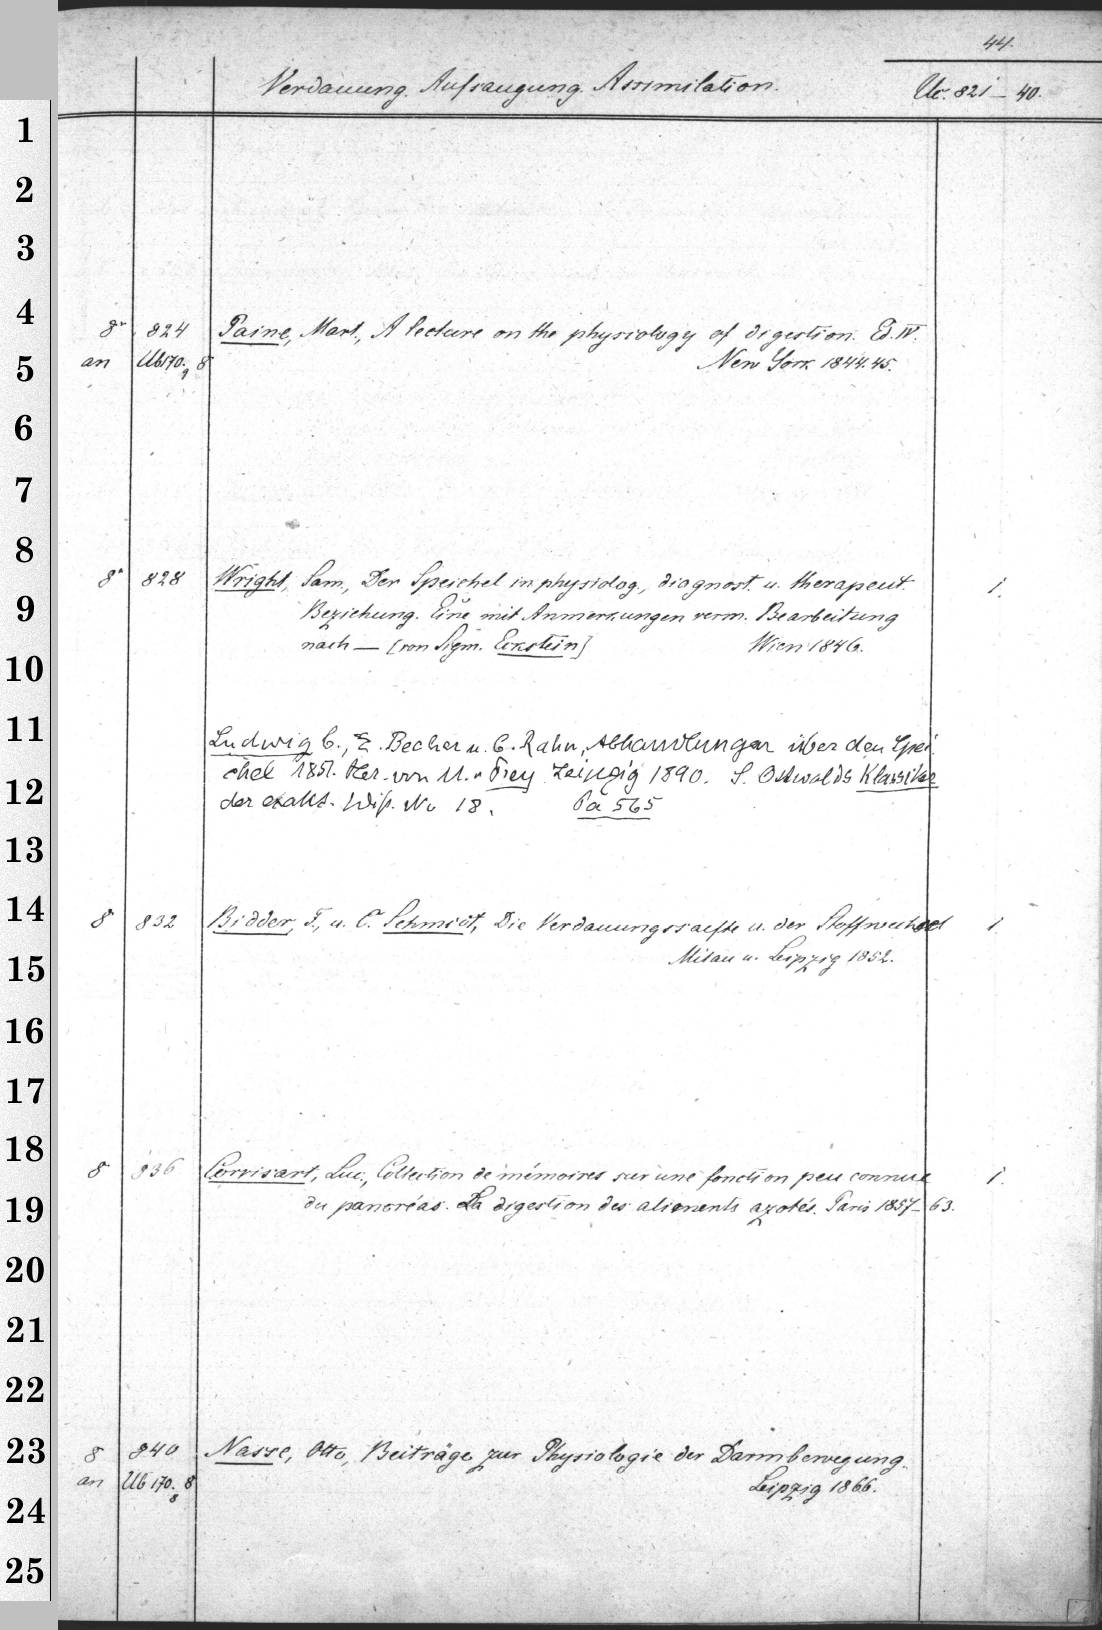 44.
Verdauung. Aufsaugung. Assimilation. Uc. 821 – 40.
1
2
3
4
8° 824 Paine, Mart., A lecture on the physiology of digestion. Ed. IV.
5
an Ub170.9 8 New York 1844.45.
6
7
8
8° 828 Wright, Sam., Der Speichel in physiolog., diagnost. u. therapeut. 1.
9
Beziehung. Eine mit Anmerkungen verm. Bearbeitung
10
nach — [von Sigm. Eckstein] Wien 1846.
11
Ludwig C., E. Becher u. C. Rahn, Abhandlungen über den Spei
12
chel 1851. Her. von M. v. Frey Leipzig 1890. S. Ostwalds Klassiker
der exakt. Wiß. No 18. Pa 565
13
14
8° 832 Bidder, F., u. C. Schmidt, Die Verdauungssaefte u. der Stoffwechsel 1.
15
Mitau u. Leipzig 1852.
16
17
18
8° 836 Corvisart, Luc., Collection de mémoires sur une fonction peu connue 1.
19
du pancréas. La digestion des aliments azotés. Paris 1857–63.
20
21
22
23
8 840 Nasse, Otto, Beiträge zur Physiologie der Darmbewegung.
an Ub 170.8 8 Leipzig 1866.
24
25